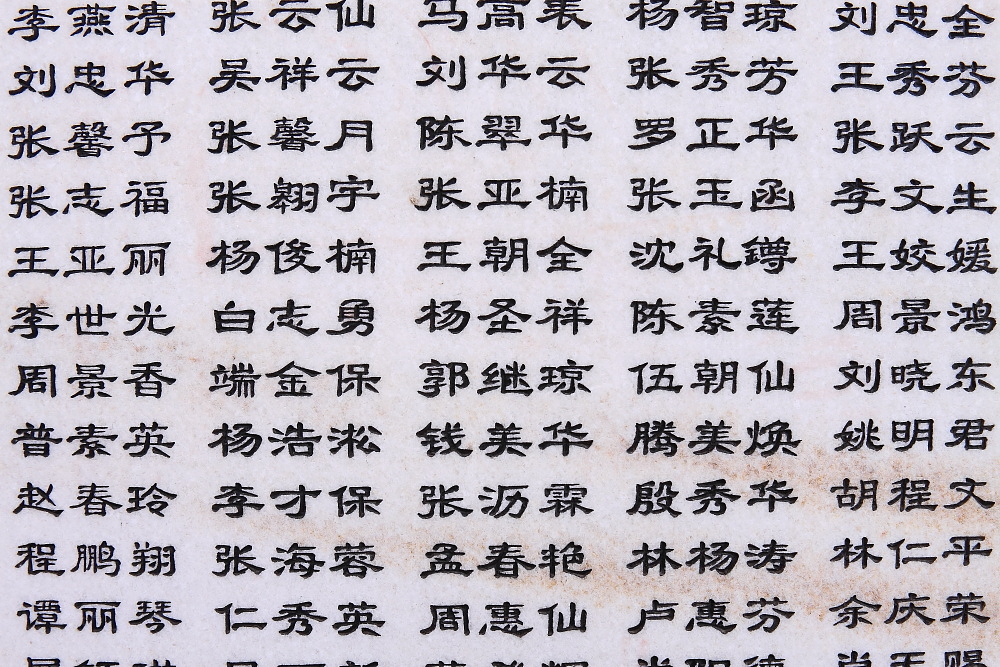 李燕清 张云仙 马高表 杨智琼 刘忠全
刘忠华 吴祥云 刘华云 张秀芳 王秀芬
张馨予 张馨月 陈翠华 罗正华 张跃云
张志福 张翱宇 张亚楠 张玉函 李文生
王亚丽 杨俊楠 王朝全 沈礼鐏 王姣媛
李世光 白志勇 杨圣祥 陈素莲 周景鸿
周景香 端金保 郭继琼 伍朝仙 刘晓东
普素英 杨浩淞 钱美华 腾美焕 姚明君
赵春玲 李才保 张沥霖 殷秀华 胡程文
程鹏翔 张海蓉 孟春艳 林杨涛 林仁平
谭丽琴 仁秀英 周惠仙 卢惠芬 余庆荣